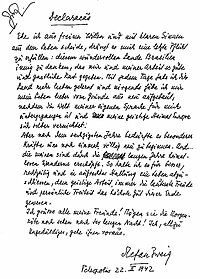 Declaracão
Ehe ich aus freiem Willen und mit klaren Sinnen
aus dem Leben scheide, drängt es mich eine letzte Pflicht
zu erfüllen: diesem wundervollen Lande Brasilien
innig zu danken, das mir und meiner Arbeit so gute
und gastliche Rast gegeben. Mit jedem Tage habe ich dies
Land mehr lieben gelernt und nirgends hätte ich mir
mein Leben lieber vom Grunde aus neu aufgebaut,
nachdem die Welt meiner eigenen Sprache für mich
untergegangen ist und meine geistige Heimat Europa
sich selber vernichtet.
Aber nach dem sechzigsten Jahre bedürfte es besonderer
Kräfte um noch einmal völlig neu zu beginnen. Und
die meinen sind durch die langen Jahre heimatlosen
Wanderns erschöpft. So halte ich es für besser,
rechtzeitig und in aufrechter Haltung ein Leben abzu-
schliessen, dem geistige Arbeit immer die lauterste Freude
und persönliche Freiheit das höchste Gut dieser Erde
gewesen.
Ich grüsse alle meine Freunde! Mögen sie die Morgen-
röte noch sehen nach der langen Nacht! Ich, allzu
Ungeduldiger, gehe ihnen voraus.
Stefan Zweig
Petropolis 22. II 1942